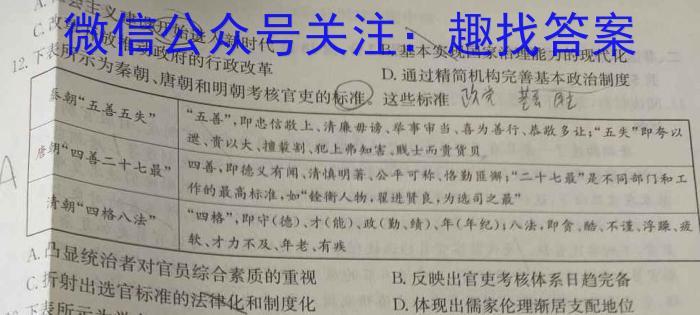 微信公众号关注：趣找答案
B.基本实现国家治理能力的现代化
D.通过精简机构完善基本政治制度
12.下表所示为秦朝、唐朝和明朝考核官吏的标准。这些标准
秦朝“五善五失”
“五善”，即忠信敬上、清廉毋谤、举事审当、喜为善行、恭敬多让；“五失”即夸以
迣、贵以大、擅裁割、犯上弗知害、贱士而贵货贝
唐朝“四善二十七最”
四善，即德义有闻、清慎明著、公平可称、恪勤匪懈；“二十七最”是不同部门和工
作的最高标准，如“铨衡人物，擢进贤良，为选司之最”
清朝“四格八法”
“四格”，即守（德）、才（能）、政（勤、绩）、年（年纪）；八法，即贪、酷、不谨、浮躁、疲
软、才力不及、年老、有疾
A.凸显统治者对官员综合素质的重视
B.反映出官吏考核体系日趋完备
C.折射出选官标准的法律化和制度化
D.体现出儒家伦理渐居支配地位
下表所示为